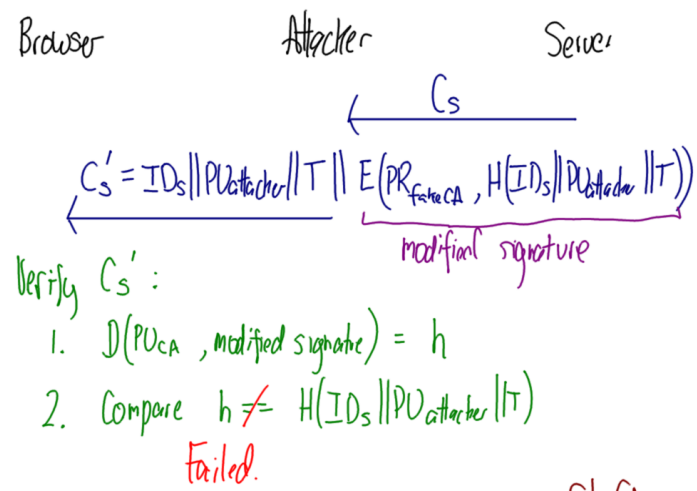 Browser Attacker Server
Cs
Cs' = IDs||PUattacker||T|| E(PRfakeCA, H(IDs||PUattacker||T))
modified signature
Verify Cs':
1. D(PUCA, modified signature) = h
2. Compare h ≠= H(IDs||PUattacker||T)
Failed.